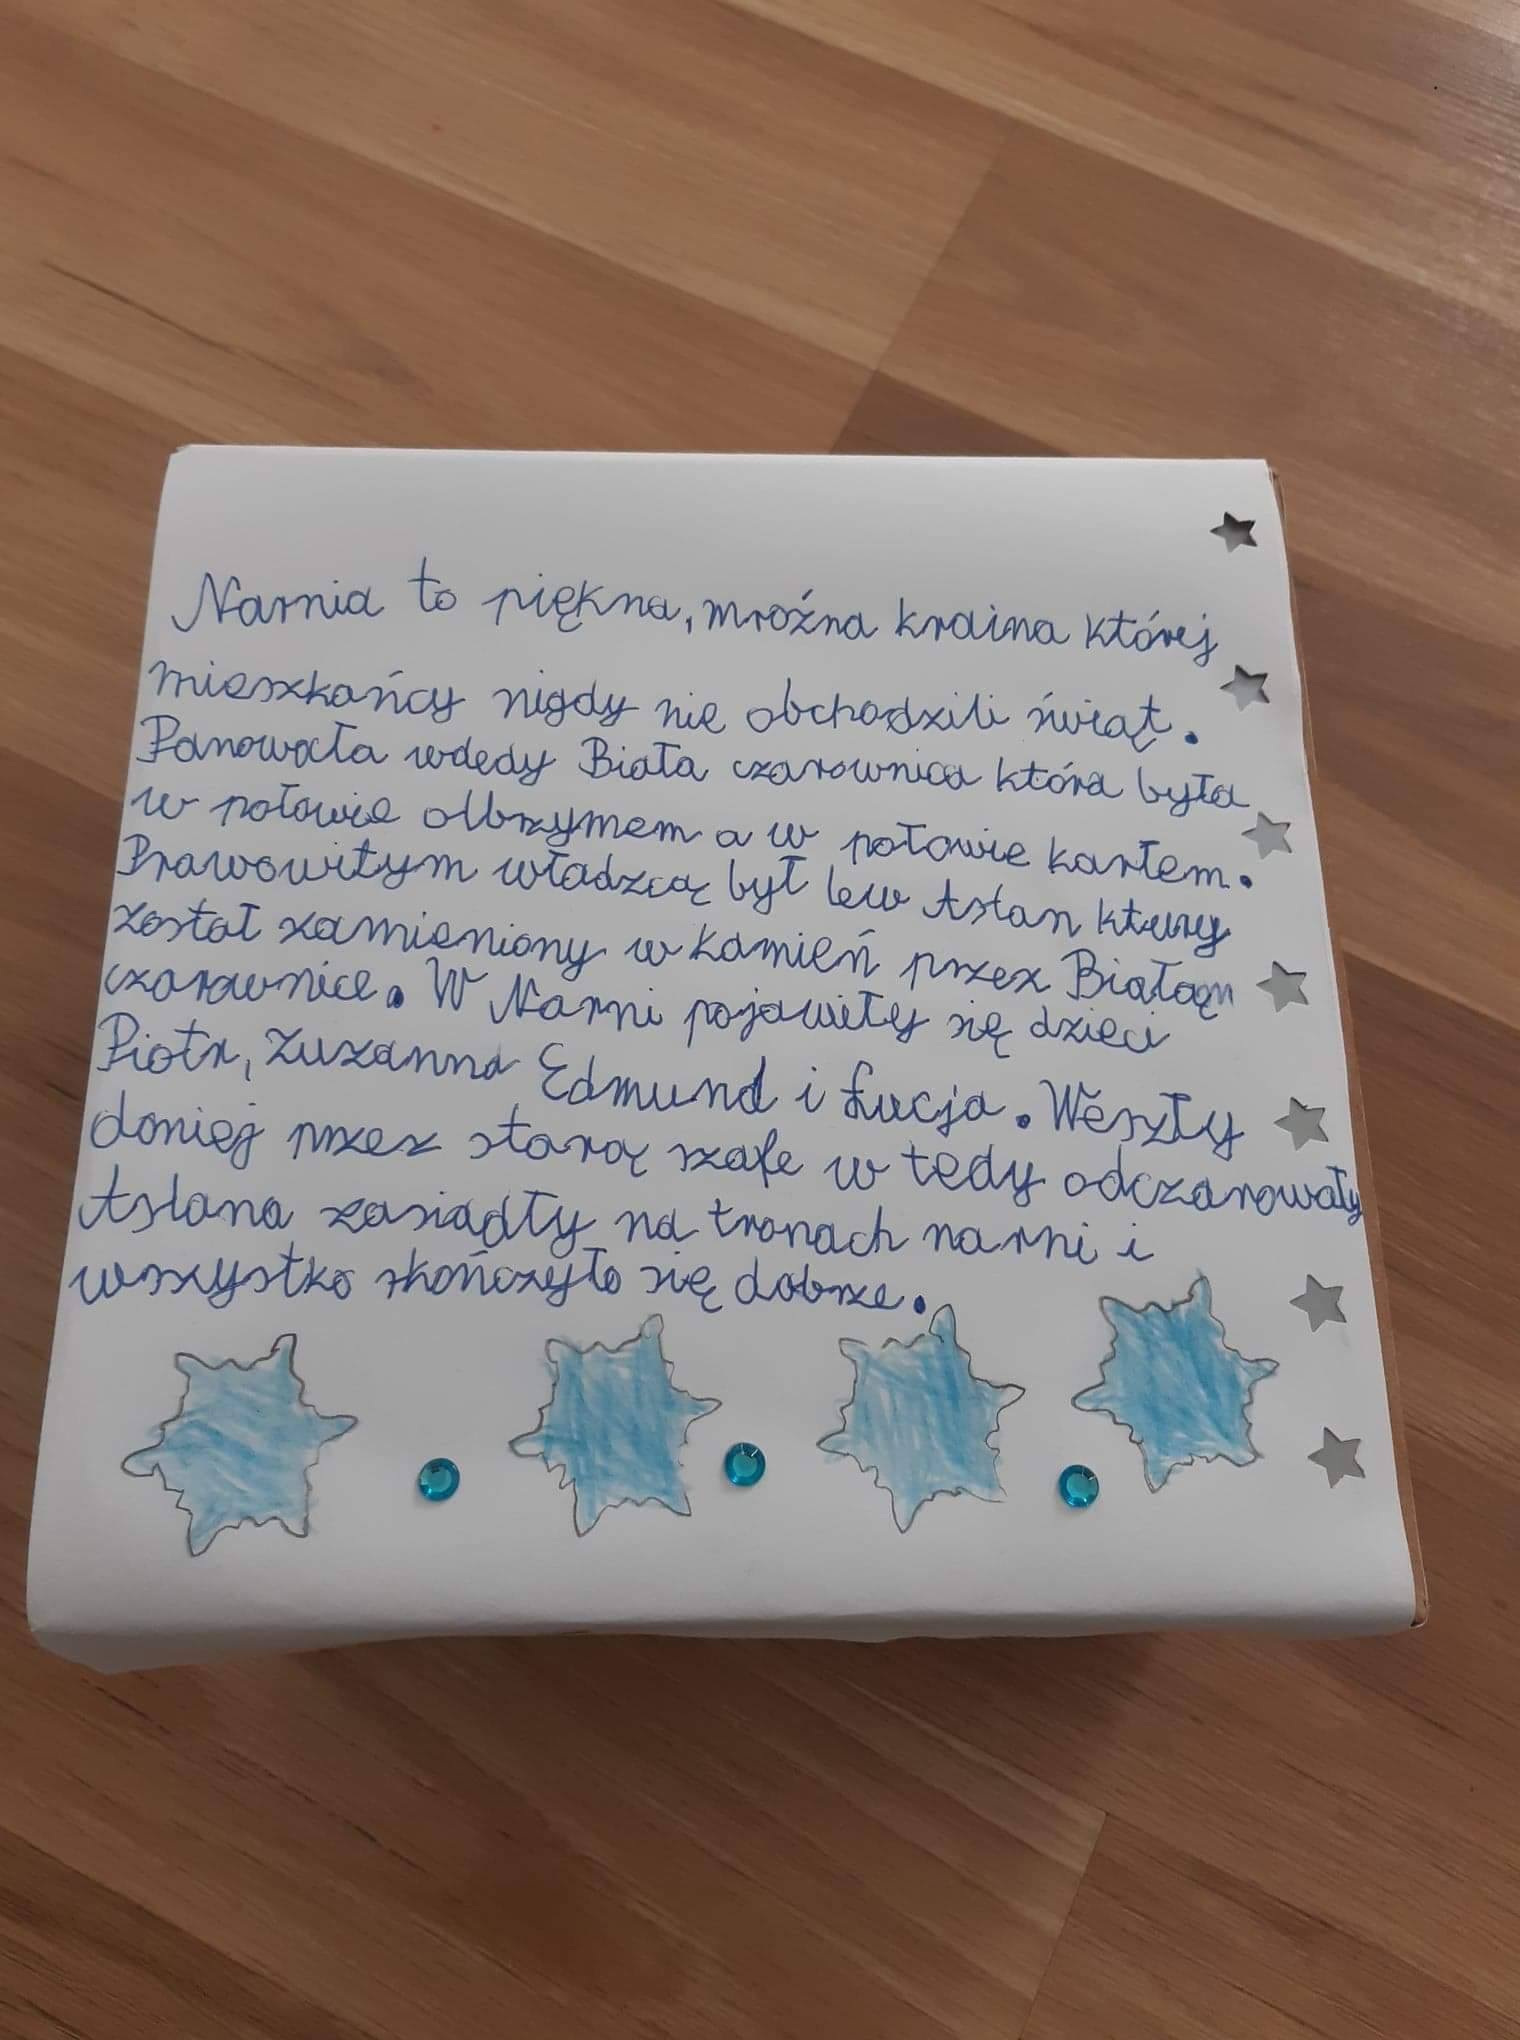 Narnia to piękna, mroźna kraina której
mieszkańcy nigdy nie obchodzili świąt.
Panowała wdedy Biała czarownica która była
w połowie olbrzymem a w połowie karłem.
Prawowitym władzcą był lew Aslan ktury
został zamieniony w kamień przez Białąm
czarownice. W Narni pojawiły się dzieci
Piotr, Zuzanna Edmund i Łucja. Weszły
doniej przez starą szafe w tedy odczarowały
Aslana zasiadły na tronach narni i
wszystko skończyło się dobrze.